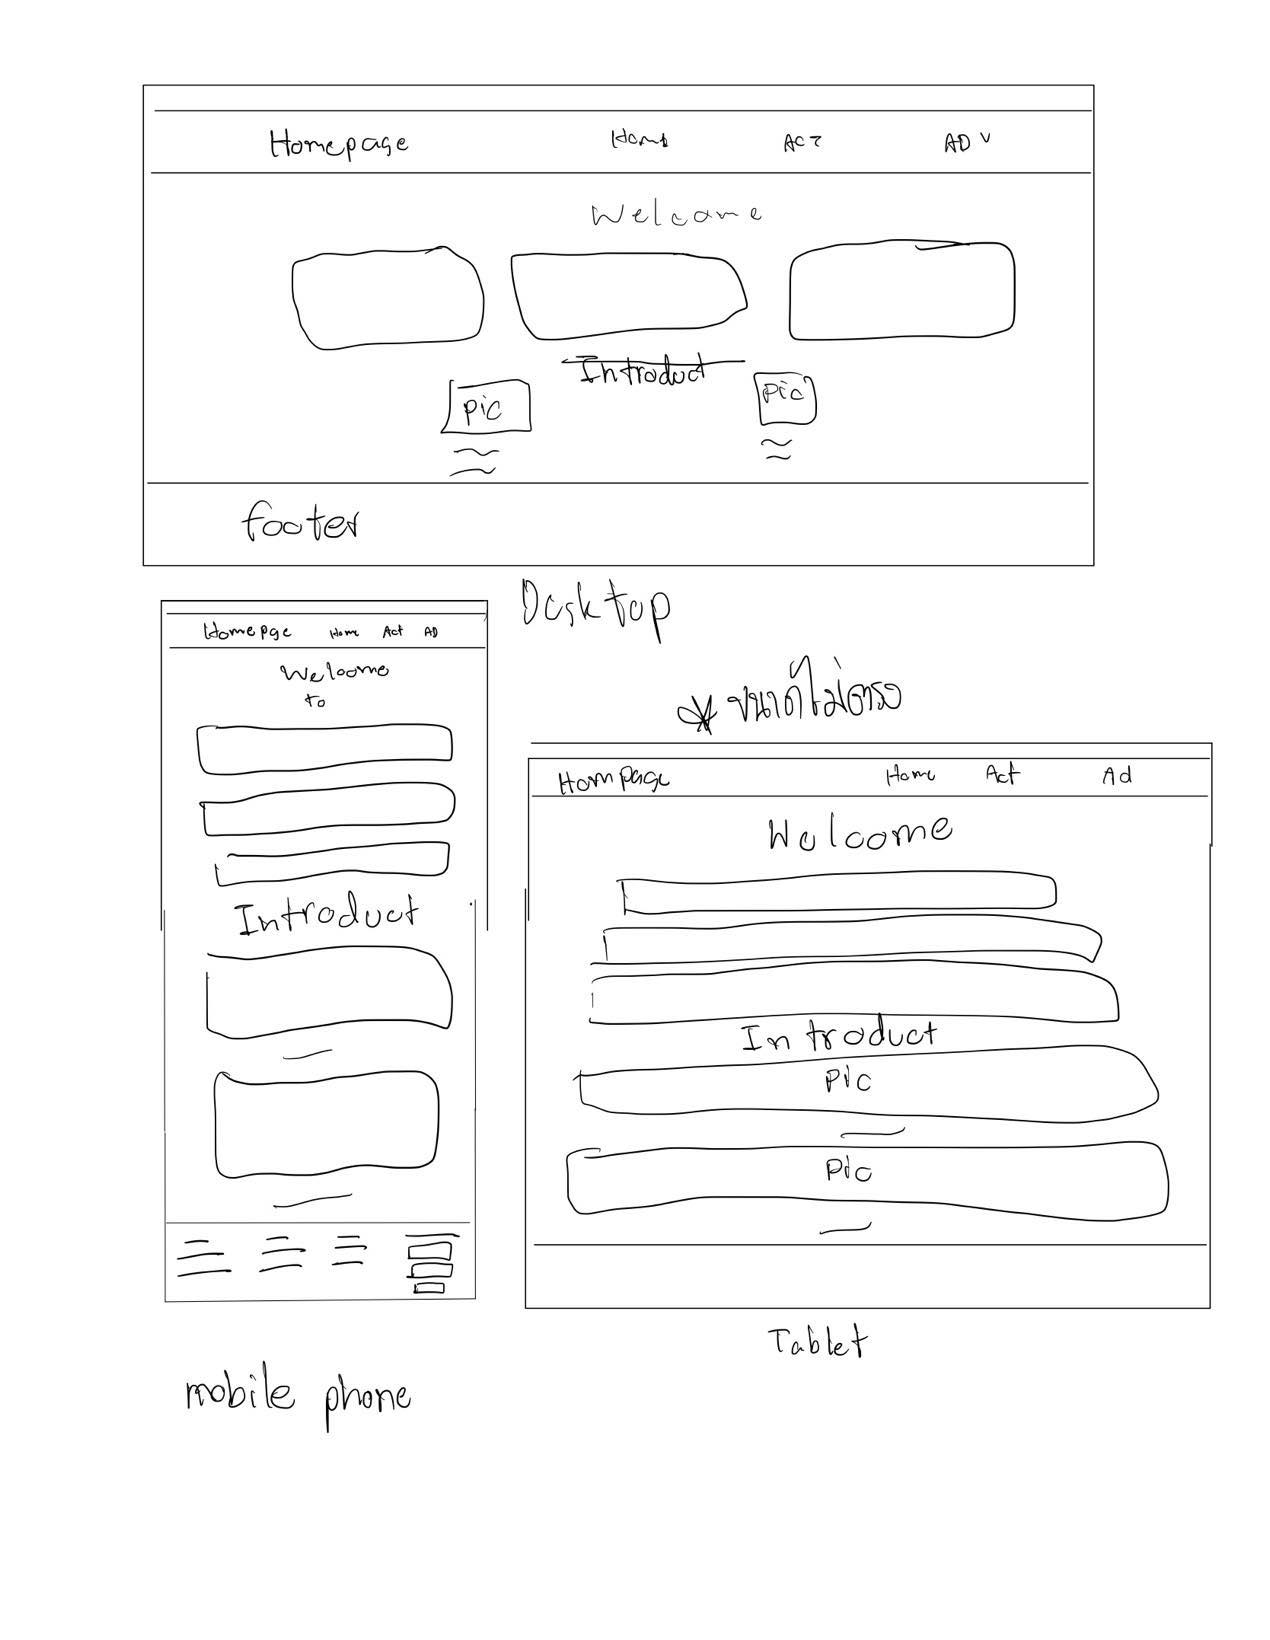 Homepage Home ACT ADV
Welcome
Introduct
pic pic
footer
Desktop
Homepge Home Act AD
Welcome
to
Introduct
mobile phone
* ขนาดไม่ตรง
Hompage Home Act Ad
Welcome
Introduct
Pic
Pic
Tablet